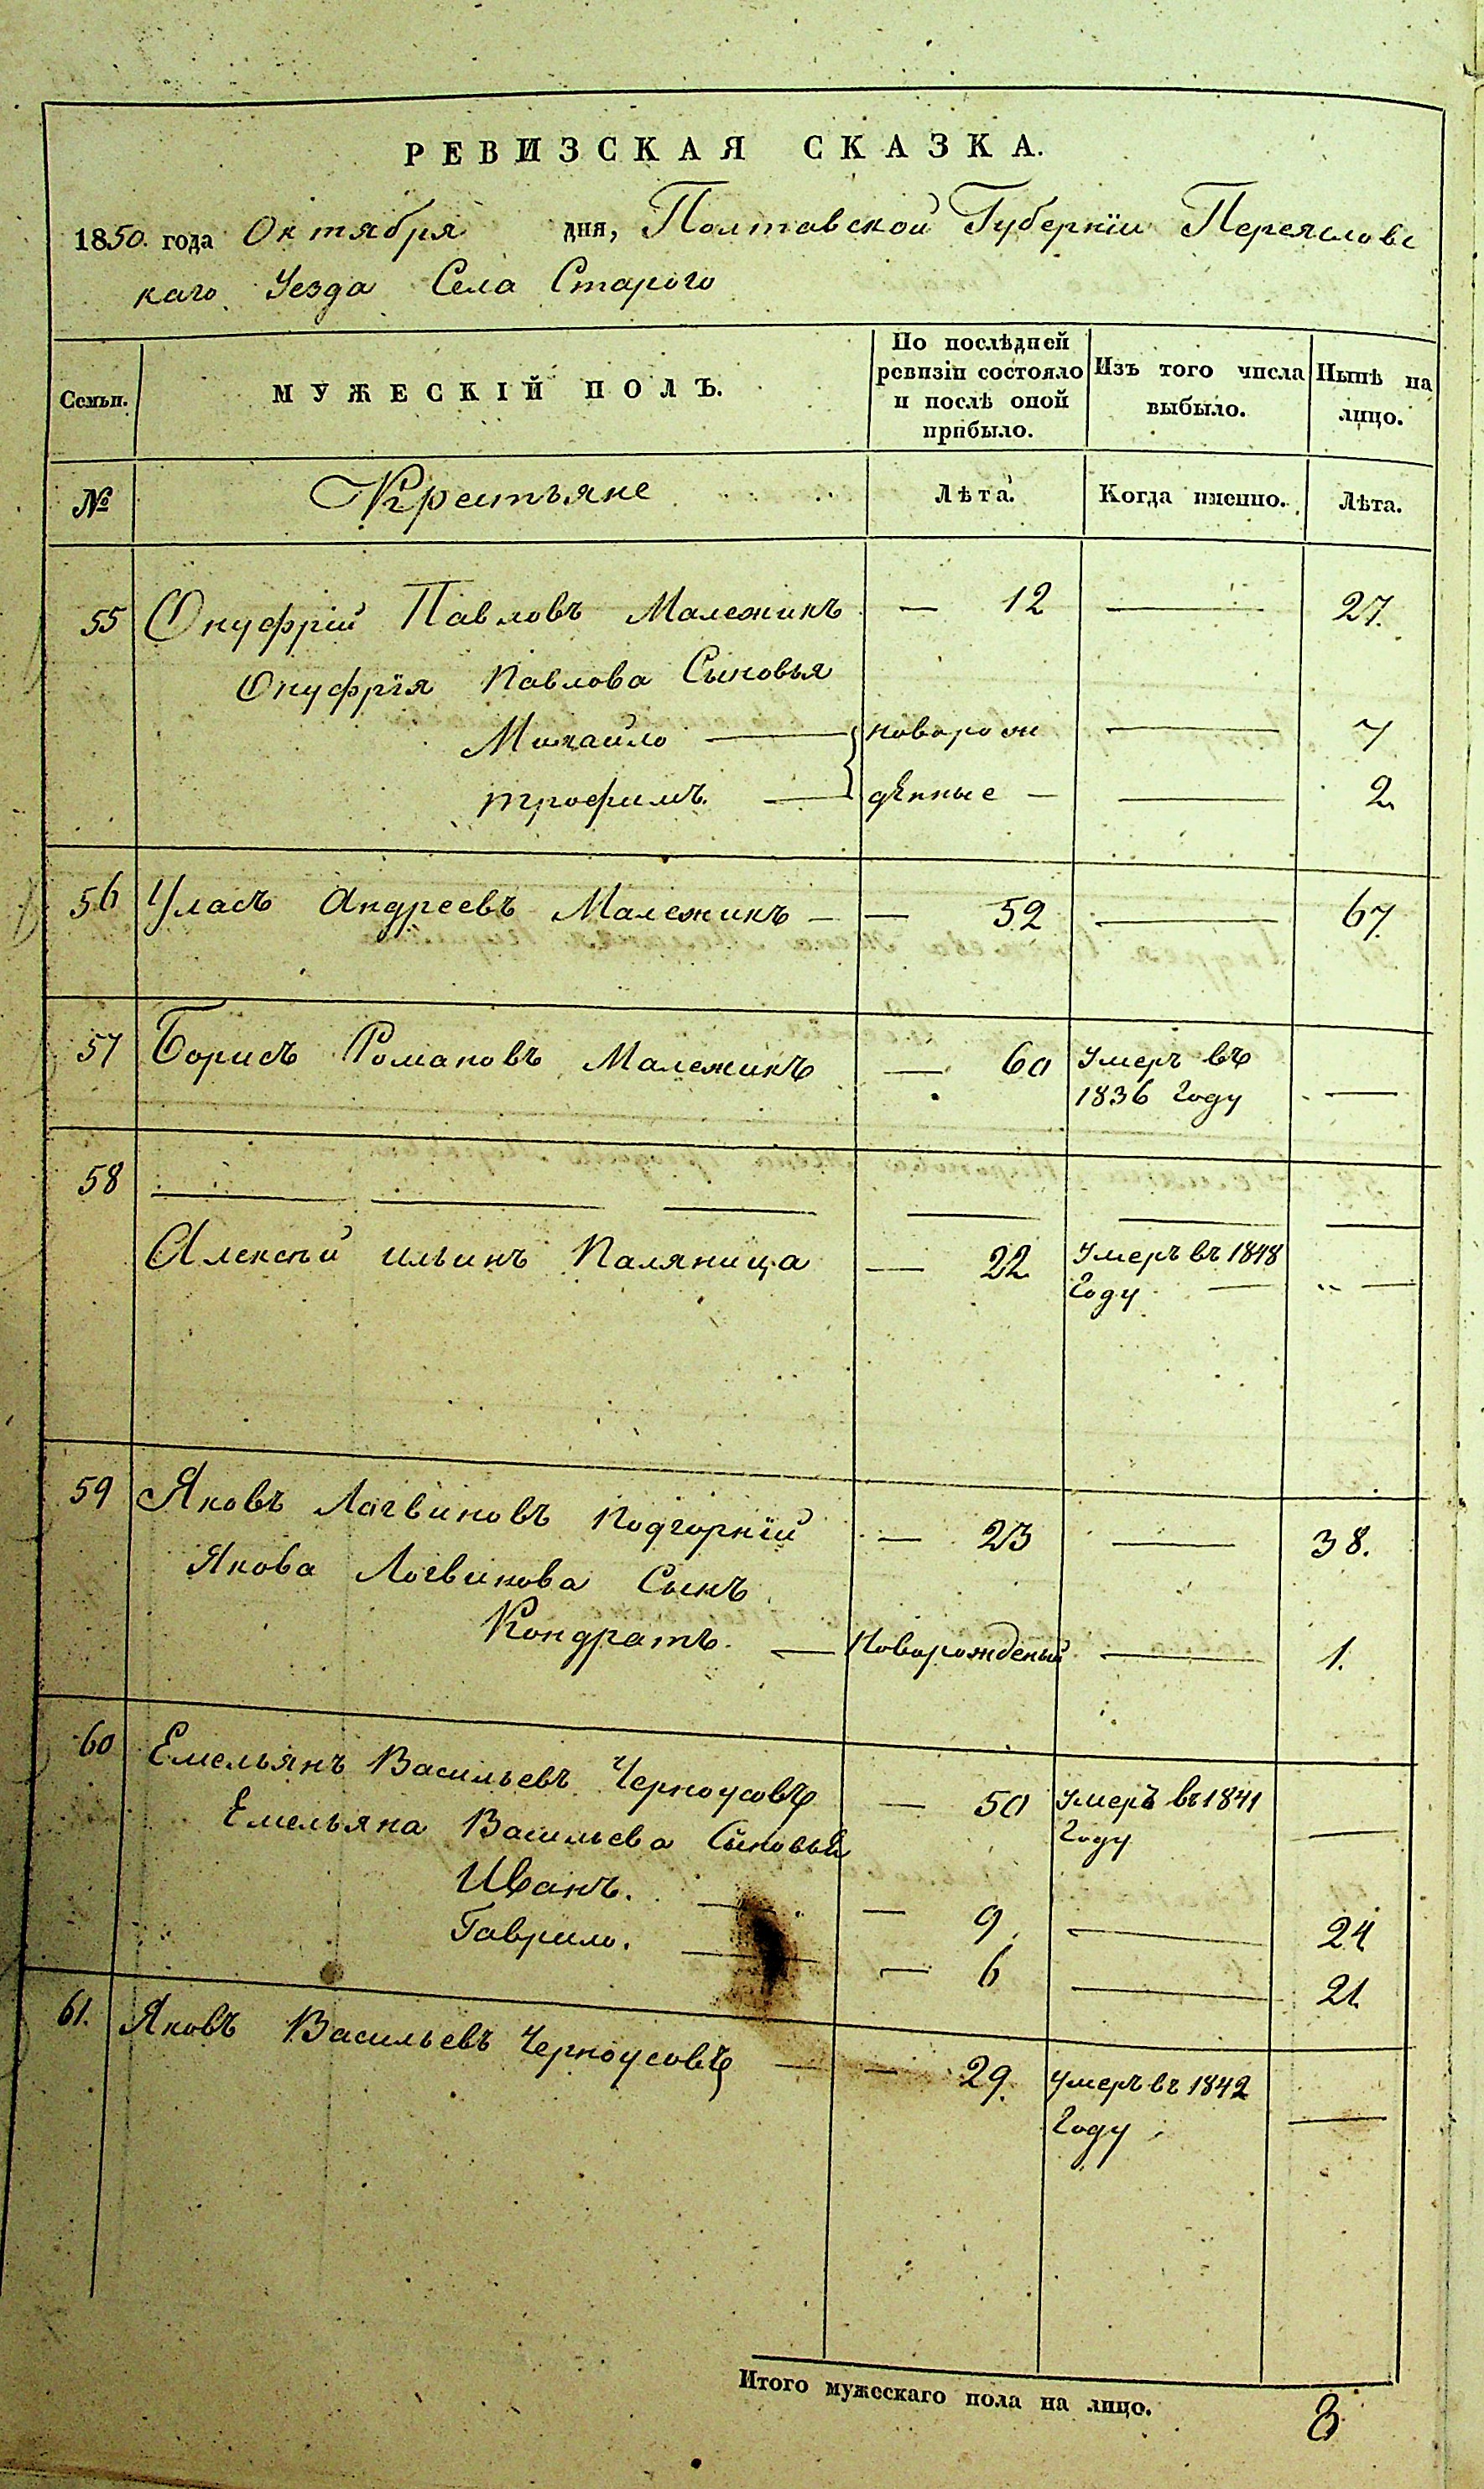 РЕВИЗСКАЯ СКАЗКА.
1850. года Октября дня, Полтавской Губернїи Переясловс
каго Уезда Села Старого
Семьи.
МУЖЕСКІЙ ПОЛЪ.
По послѣдней
ревизіи состояло
и послѣ оной
прибыло.
Изъ того числа
выбыло.
Нынѣ на
лицо.
№
Крестьяне
Лѣта.
Когда именно.
Лѣта.
55 Онуфрїй Павловъ Малежикъ — 12 — 27.
Онуфрїя Павлова Сыновья
Михайло — новорож — 7
трофимъ. — дѣнные — — 2.
56 Уласъ Андреевъ Малежикъ — — 52 — 67.
57 Борисъ Романовъ Малежикъ — 60 Умеръ въ
1836 Году —
58 — — — — — —
Алексѣй ильинъ Паляница — 22 Умеръ въ 1848
Году — „ —
59 Яковъ Логвиновъ Подгорнїй — 23 — 38.
Якова Логвинова Сынъ
Кондратъ. — Новорожденый — 1.
60 Емельянъ Васильевъ Черноусовъ — 50 Умеръ въ 1841
Году —
Емельяна Васильева Сыновья
Иванъ. — — 9. — 24
Гаврило. — — 6 — 21.
61. Яковъ Васильевъ Черноусовъ — — 29. Умеръ въ 1842
Году. —
Итого мужескаго пола на лицо. 8